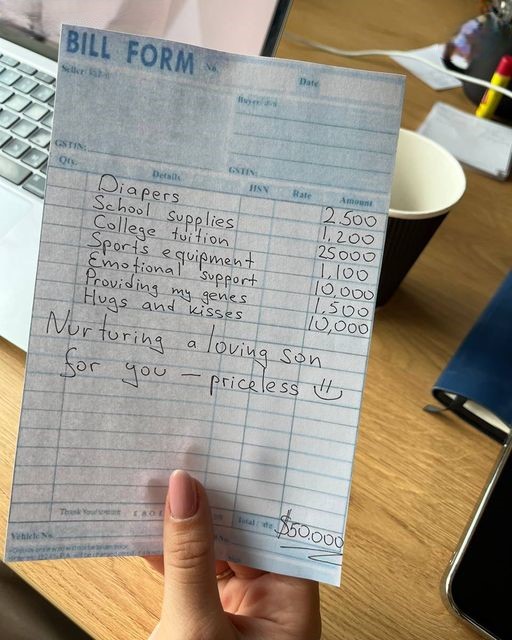 BILL FORM No.
Date
Seller
Buyer
GSTIN:
GSTIN:
Qty. Details HSN Rate Amount
Diapers 2.500
School supplies 1,200
College tuition 25000
Sports equipment 1,100
Emotional support 10,000
Providing my genes 1,500
Hugs and kisses 10,000
Nurturing a loving son
for you – priceless
Thank You E.&O.E. Total $50.000
Vehicle No.